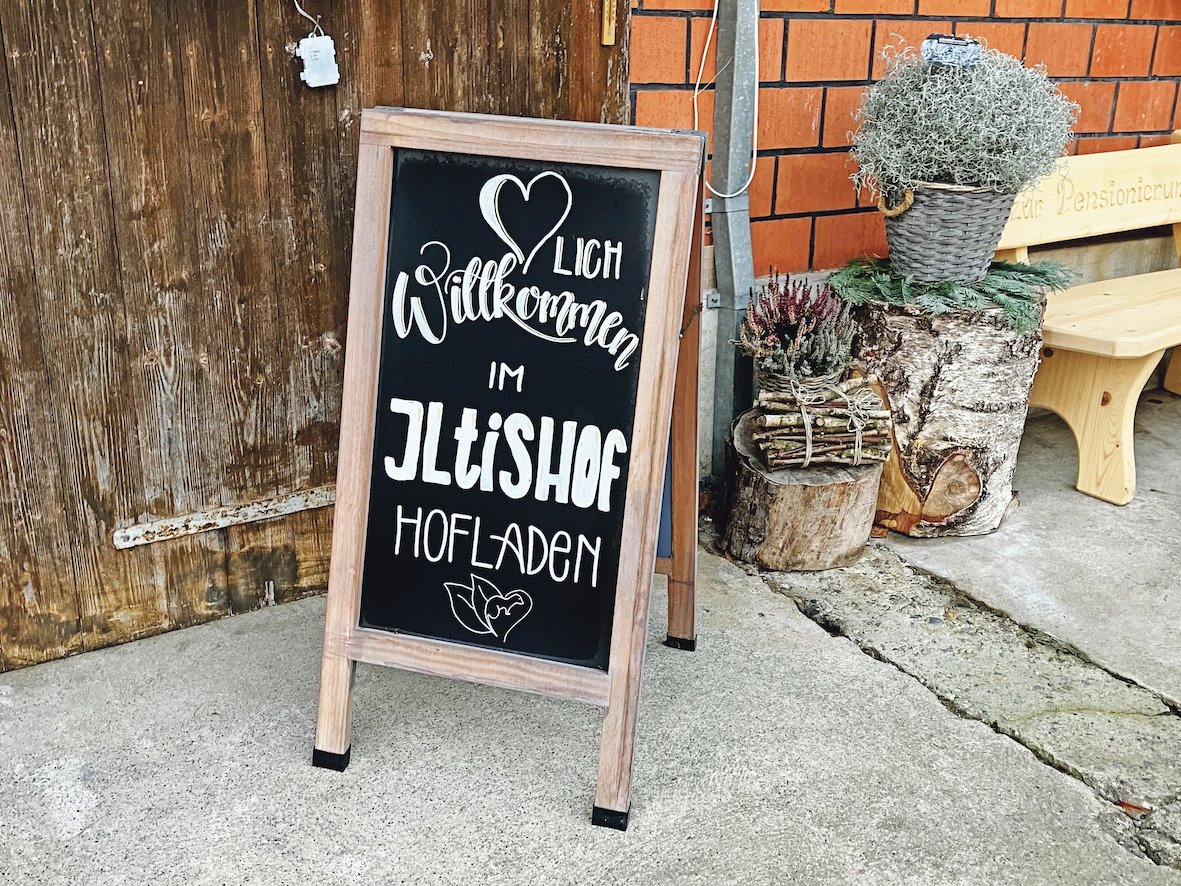 LICH
Willkommen
IM
ILtiSHOF
HOFLADEN
zur Pensionierun